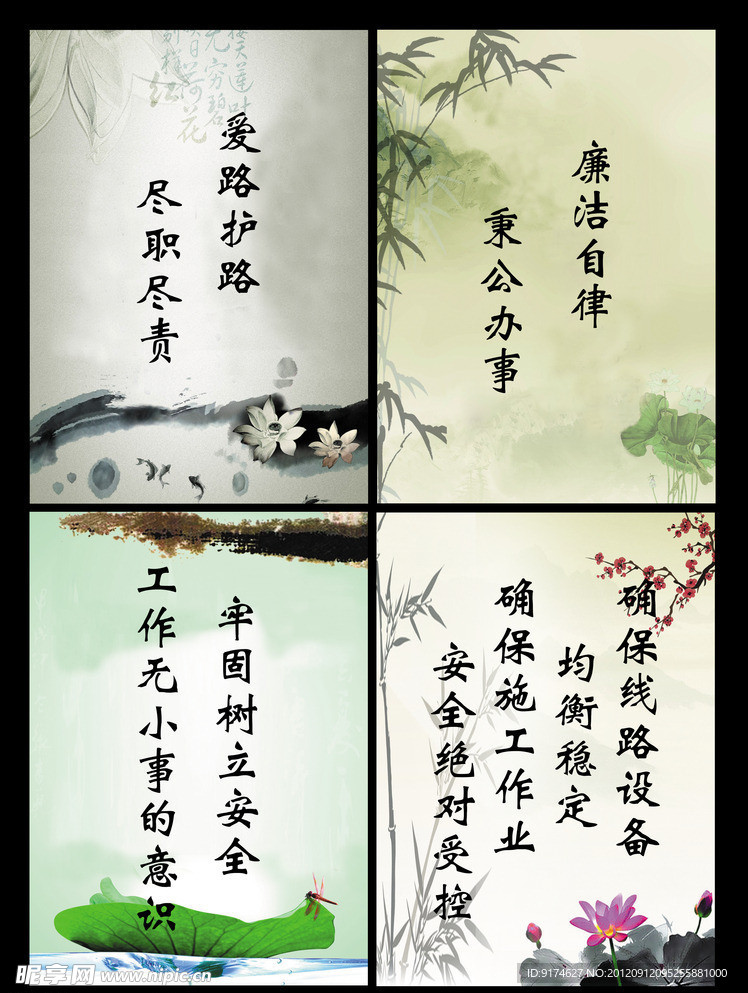 接天莲叶
无穷碧
映日荷花
别样红
爱路护路
尽职尽责
廉洁自律
秉公办事
牢固树立安全
工作无小事的意识
确保线路设备
均衡稳定
确保施工作业
安全绝对受控
昵享网 www.nipic.cn
ID:9174627 NO:20120912095255881000